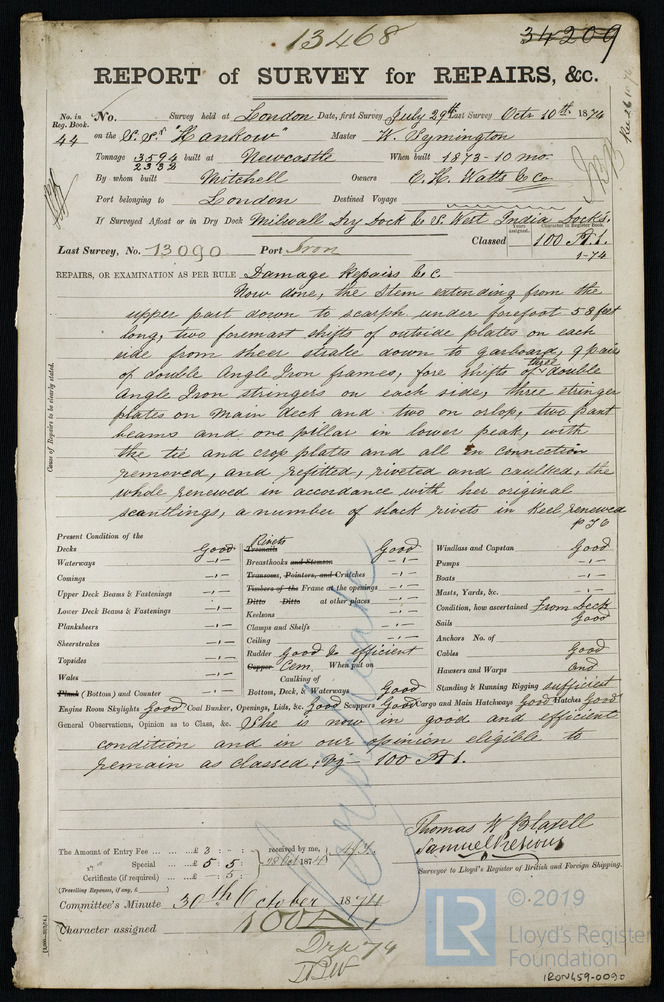 13468
34209
REPORT of SURVEY for REPAIRS, &c.
No. in Reg. Book. No. Survey held at London Date, first Survey July 29th Last Survey Octr 10th 1874
44 on the S.S. "Hankow" Master W. Symington
Tonnage 3594 built at Newcastle When built 1873-10 mo.
2332
By whom built Mitchell Owners C. H. Watts & Co
Port belonging to London Destined Voyage
If Surveyed Afloat or in Dry Dock Milwall Dry Dock & S. West India Docks.
Last Survey, No. 13090 Port Iron Classed Years assigned. Character in Register Book. 100 A.1.
1-74
REPAIRS, OR EXAMINATION AS PER RULE Damage Repairs &c
Cause of Repairs to be clearly stated.
Now done, the Stem extending from the
upper part down to scarph under forefoot 58 feet
long, two foremost shifts of outside plates on each
side from sheer strake down to garboard, 9 pairs
of double Angle Iron frames, fore shifts of three double
Angle Iron stringers on each side, three stringer
plates on main deck and two on orlop, two pant
beams and one pillar in lower peak, with
the tie and crop plates and all in connection
removed, and refitted, riveted and caulked, the
whole renewed in accordance with her original
scantlings, a number of slack rivets in Keel renewed
Present Condition of the
Decks Good
Waterways -"-
Comings -"-
Upper Deck Beams & Fastenings -"-
Lower Deck Beams & Fastenings -"-
Planksheers -"-
Sheerstrakes -"-
Topsides -"-
Wales -"-
Plank (Bottom) and Counter -"-
Rivets
Treenails Good
Breasthooks and Stemson -"-
Transoms, Pointers, and Crutches -"-
Timbers of the Frame at the openings -"-
Ditto Ditto at other places -"-
Keelsons -"-
Clamps and Shelfs -"-
Ceiling -"-
Rudder Good & efficient
Copper Cem. When put on
Caulking of
Bottom, Deck, & Waterways Good
Windlass and Capstan Good
Pumps -"-
Boats -"-
Masts, Yards, &c. -"-
Condition, how ascertained From Deck
Sails Good
Anchors No. of
Cables Good
Hawsers and Warps and
Standing & Running Rigging sufficient
Engine Room Skylights Good Coal Bunker, Openings, Lids, &c. Good Scuppers Good Cargo and Main Hatchways Good Hatches Good
General Observations, Opinion as to Class, &c. She is now in good and efficient
condition and in our opinion eligible to
remain as classed: Viz - 100 A 1.
Thomas W Blaxell
Samuel Pretious
Surveyor to Lloyd's Register of British and Foreign Shipping.
The Amount of Entry Fee ... £ 3 : - : - received by me,
Special ... £ 5 : 5 : 28 Oct 1874
Certificate (if required) ... £ - : 5 :
(Travelling Expenses, if any, £
Committee's Minute 30th October 1874
Character assigned 100 A 1
74
© 2019
LR
Lloyd's Register
Foundation
IRON459-0090